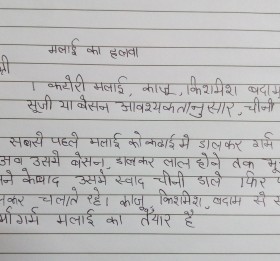 मलाई का हलवा
मी
1 कटोरी मलाई, काजू, किशमिश बदाम
सूजी या बेसन आवश्यकतानुसार, चीनी
सबसे पहले मलाई को कढाई मे डालकर गर्म
अब उसमे बेसन, डालकर लाल होने तक भू
ने केबाद उसमे स्वाद चीनी डाले फिर प
कर चलाते रहे। काजू किशमिश, बदाम से स
र्मागर्म मलाई का तैयार है